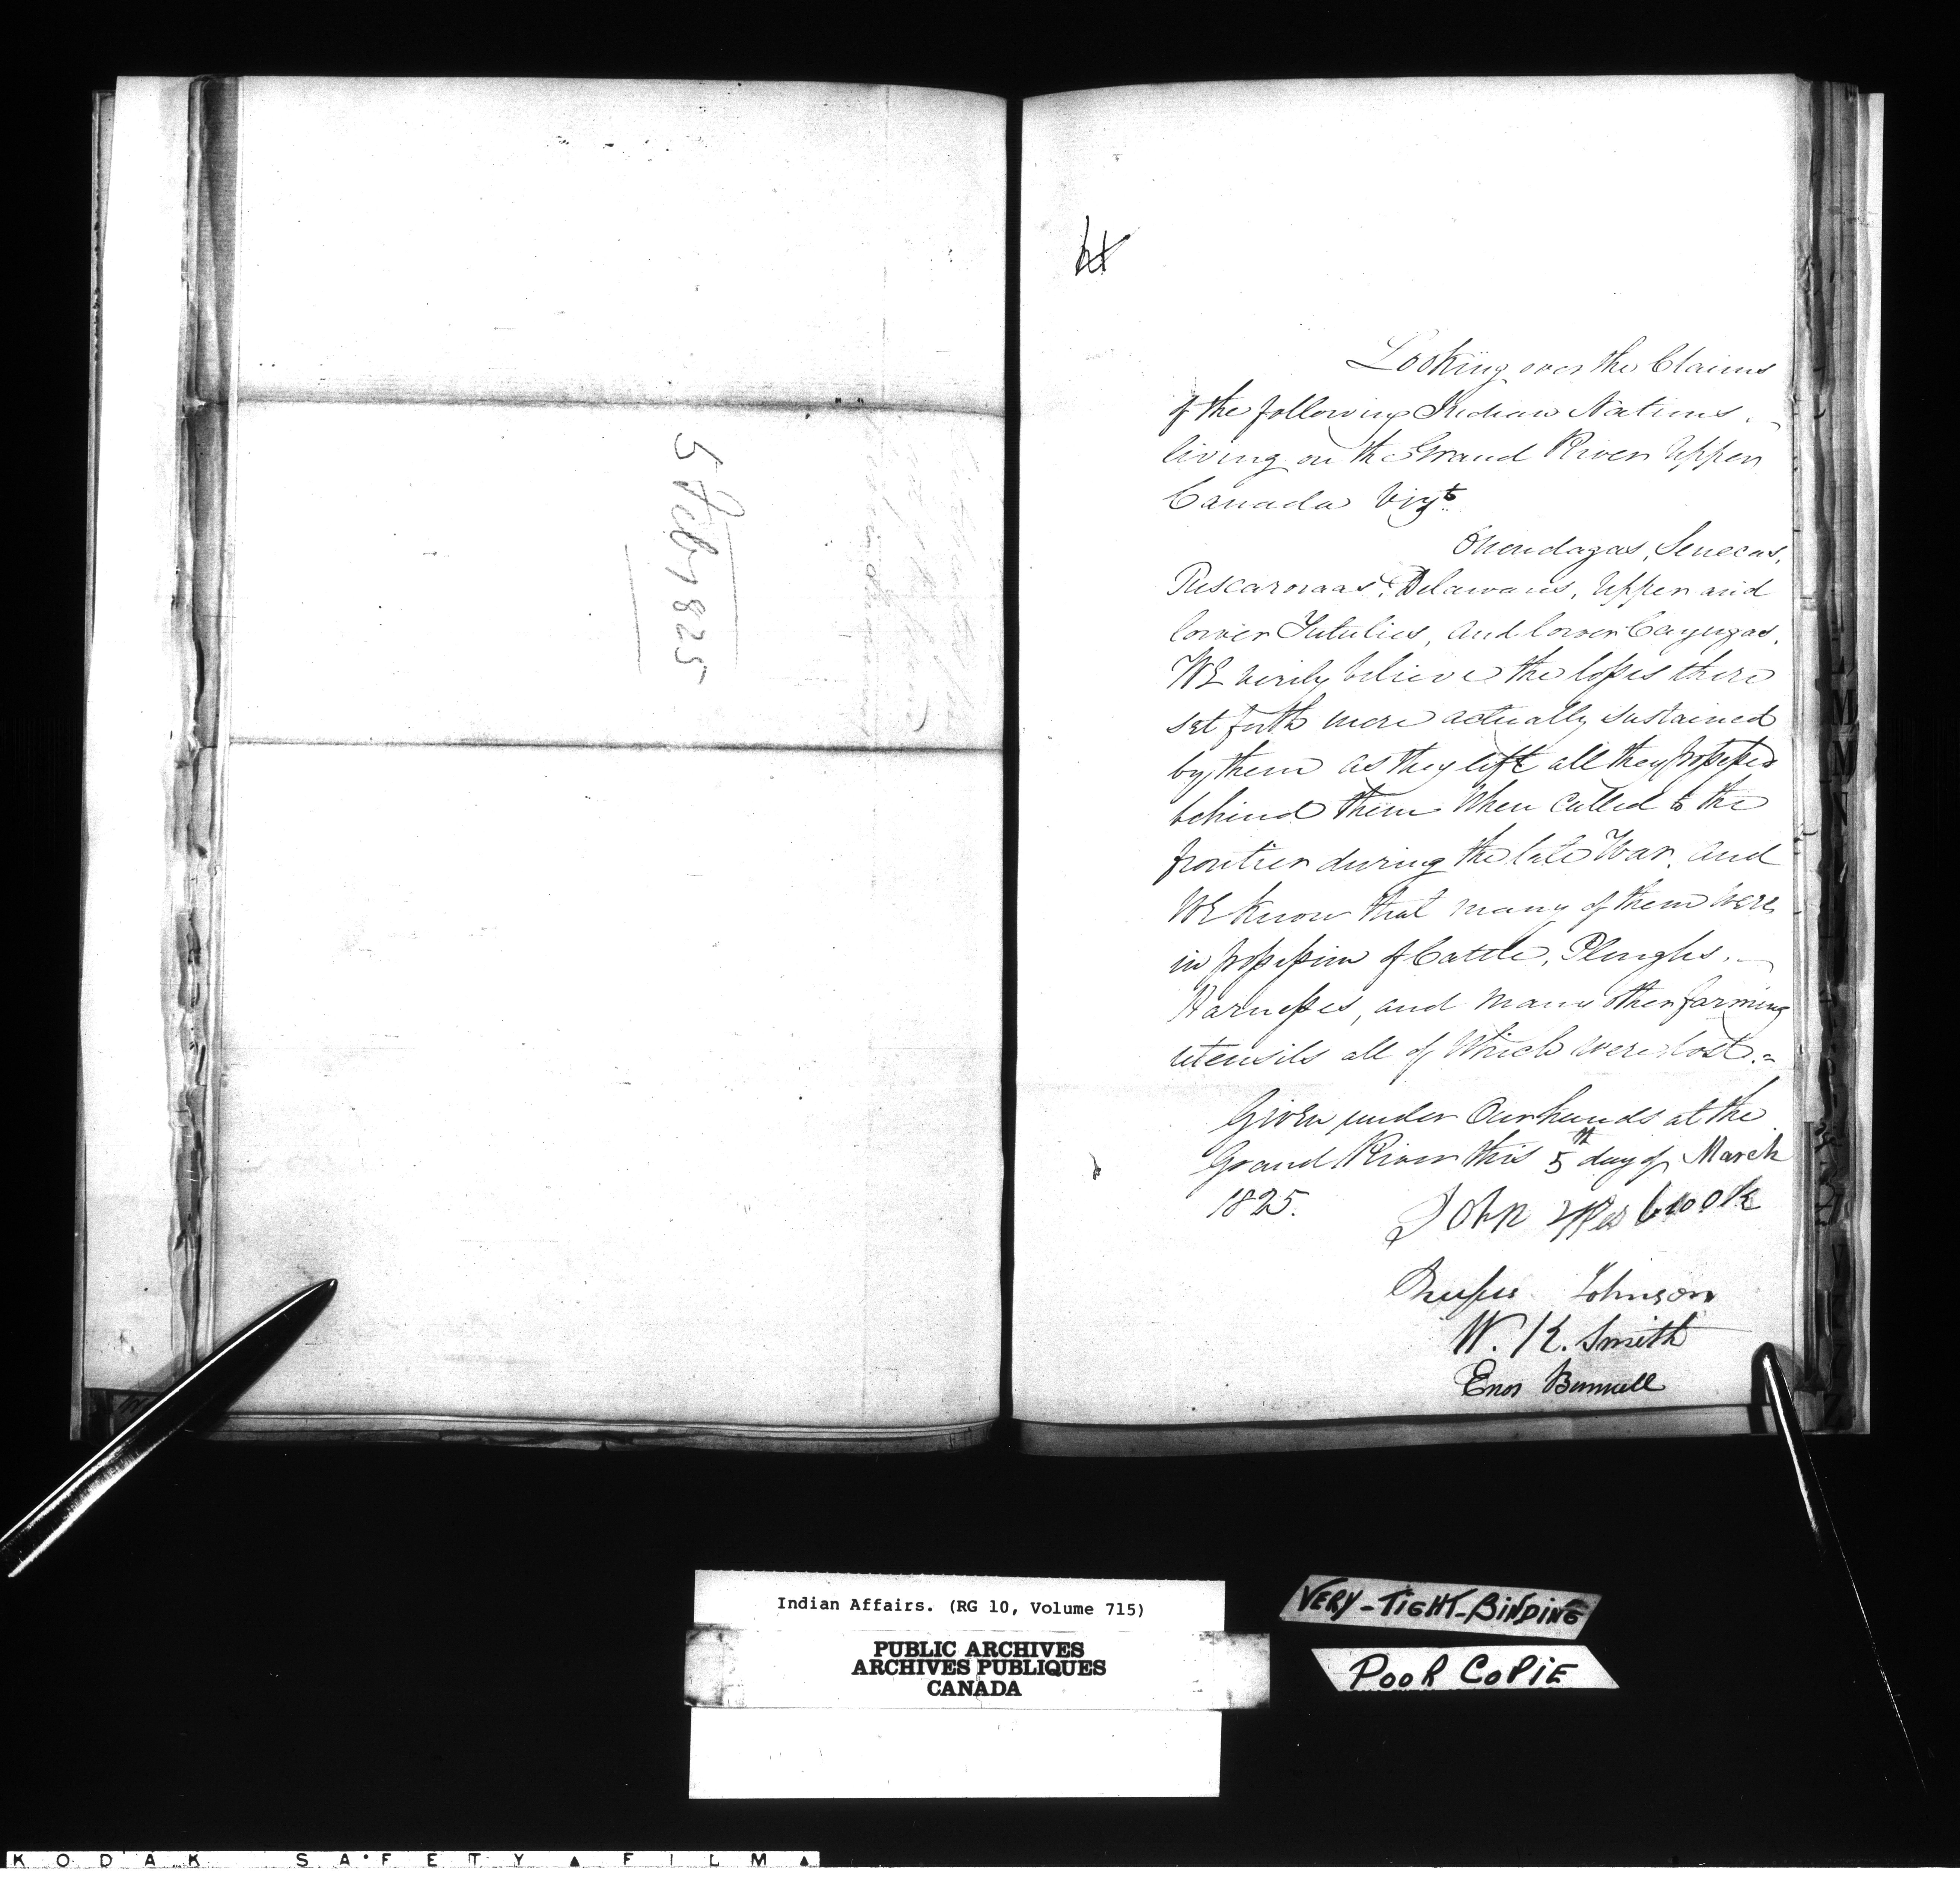 5 Feby 1825
Looking over the Claims
of the following Indian Nations
living on the Grand River Upper
Canada Vizt
Onondagas, Senecas,
Tuscaroraas, Delawares, Upper and
lower Tutulies, and lower Cayugas.
WE verily believe the losses there
set forth were actually sustained
by them as they left all they possessed
behind them When Called to the
frontier during the late War, and
WE know that many of them were
in possession of Cattle, Ploughs,
Harnesses, and many other farming
utensils all of Which were lost.=
Given under Our hands at the
Grand River this 5th day of March
1825.
John Westbrook
Rufus Johnson
W. K. Smith
Enos Bunnell
Indian Affairs. (RG 10, Volume 715)
PUBLIC ARCHIVES
ARCHIVES PUBLIQUES
CANADA
VERY-TIGHT-BINDING
POOR COPIE
KODAK SAFETY FILM